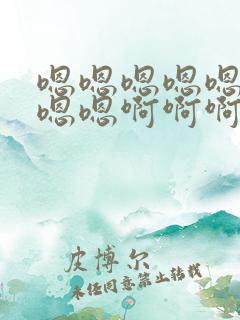 嗯嗯嗯嗯嗯
嗯嗯啊啊啊
皮博尔
未经同意禁止转载